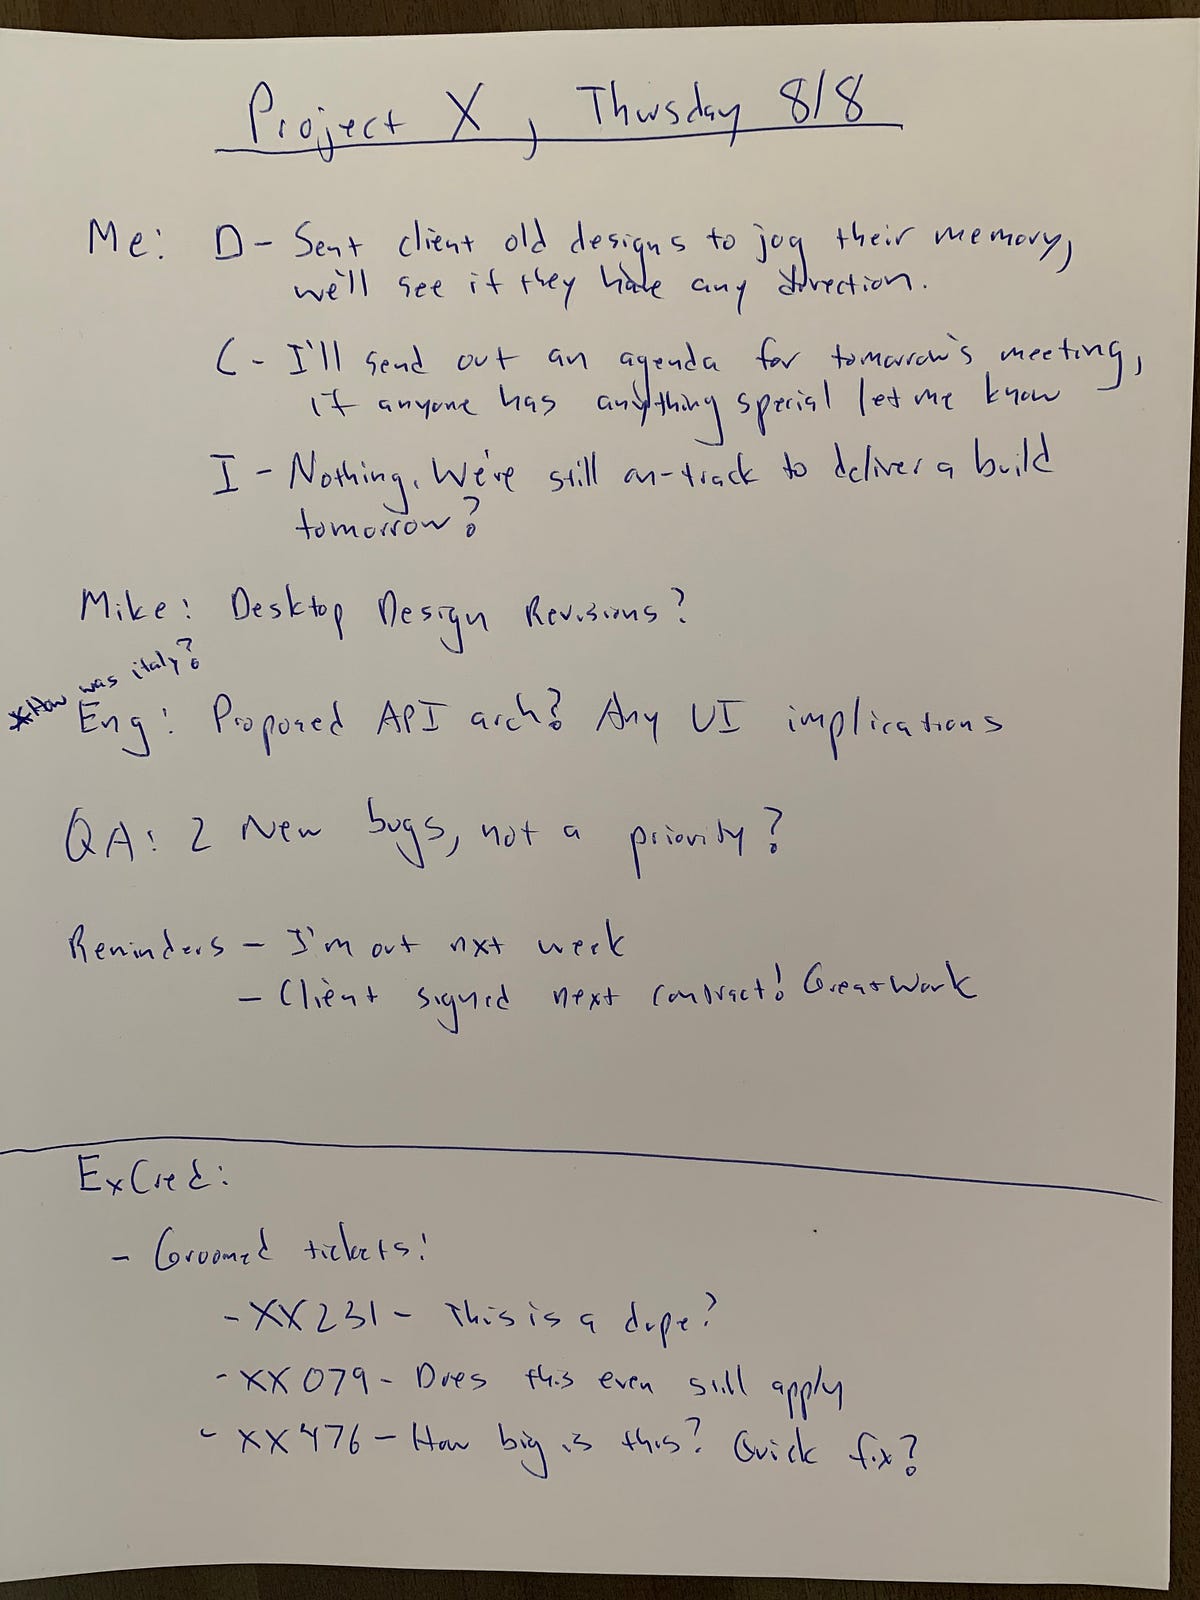 Project X, Thursday 8/8
Me: D - Sent client old designs to jog their memory,
we'll see if they have any direction.
C - I'll send out an agenda for tomorrow's meeting,
if anyone has anything special let me know
I - Nothing. We're still on-track to deliver a build
tomorrow?
Mike: Desktop Design Revisions?
*How was italy?
Eng: Proposed API arch? Any UI implications
QA: 2 New bugs, not a priority?
Reminders - I'm out nxt week
- Client signed next contract! Great Work
ExCred:
- Groomed tickets!
- XX231 - This is a dupe?
- XX079 - Does this even still apply
- XX476 - How big is this? Quick fix?